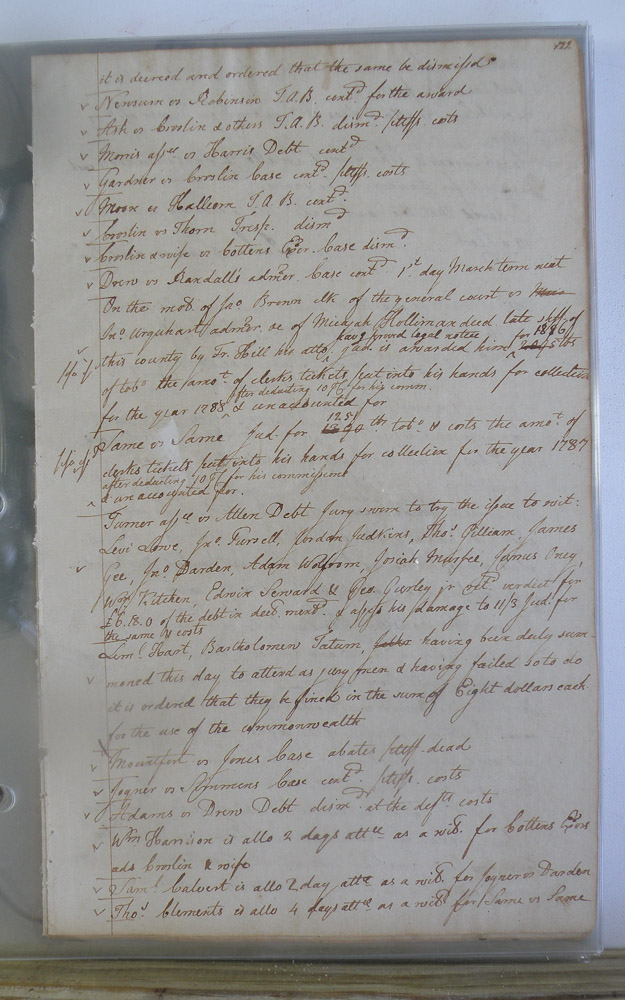 122
it is decreed and ordered that the same be dismissd
Newsum vs Robinson T.A.B. contd. for the award
Ash vs Croslin & others T.A.B. dismd. pltffs. costs
Morris assee vs Harris Debt contd
Gardner vs Croslin Case contd. pltffs. costs
Moore vs Hallcom T.A.B. contd.
Croslin vs Thorn Tresp. dismd
Croslin & wife vs Cottens Exor. Case dismd.
Drew vs Randall's admor. Case contd 1st. day March term next
On the moo. of Jno Brown clk of the general court vs
Jno. Urquhart admor. &c of Micajah Holliman deced late shff. of
havg. proved legal notice for 1786
this county by Fr. Hill his atto. Jud. is awarded him lbs
of tobo the amot. of clerks tickets put into his hands for collection
after deducting 10 for his comm.
for the year 1788 & unaccounted for
1251
Same vs Same Jud. for lbs tobo & costs the amot. of
clerks tickets put into his hands for collection for the year 1787
after deducting 10 for his commissions
& unaccounted for.
Turner assee vs Allen Debt Jury sworn to try the issue to wit:
Levi Lowe, Jno. Fussell, Jordan Judkins, Thos. Gilliam, James
Gee, Jno. Darden, Adam Wolfrom, Josiah Murfee, James Oney,
Wm. Kitchen, Edwin Seward & Geo. Gurley jr retd. verdict for
£6.18.0 of the debt in decl. mentd. & assess his damage to 11/3 Jud. for
the same & costs
Leml. Hart, Bartholomew Tatum, having been duly sum-
moned this day to attend as jury men & having failed so to do
it is ordered that they be fined in the sum of Eight dollars each
for the use of the commonwealth
Mountfort vs Jones Case abates pltff. dead
Joyner vs Simmons Case contd. pltffs. costs
Adams vs Drew Debt dismd. at the defts costs
Wm Harrison is allo 2 days attce as a wit. for Cottens Exors
ads Croslin & wife
Saml. Calvert is allo 2 day attce as a wit. for Joyner vs Darden
Thos. Clements is allo 4 days attce as a wit for Same vs Same